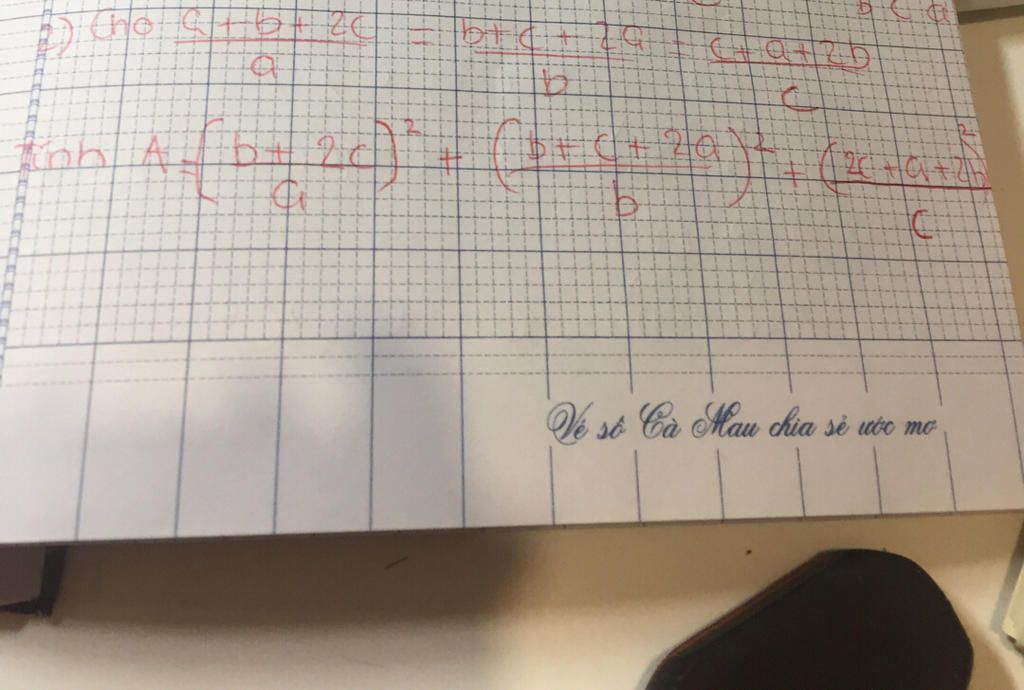 b c a
2) Cho \frac{a+b+2c}{a} = \frac{b+c+2a}{b} = \frac{c+a+2b}{c}
tính A = \left(\frac{b+2c}{a}\right)^2 + \left(\frac{b+c+2a}{b}\right)^2 + \left(\frac{2c+a+2b}{c}\right)^2
Vé số Cà Mau chia sẻ ước mơ